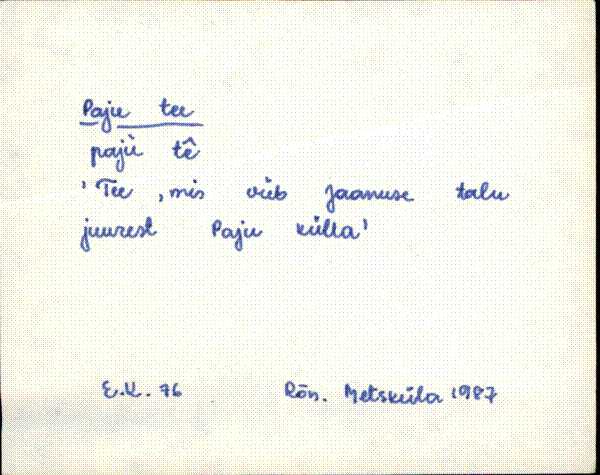 Paju tee
pajù tê
'Tee, mis viib Jaanuse talu
juurest Paju külla'
E.K. 76 Rõn. Metsküla 1987